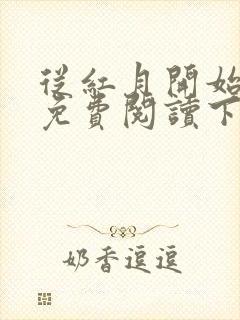 從紅月開始
免費閱讀下
奶香逗逗